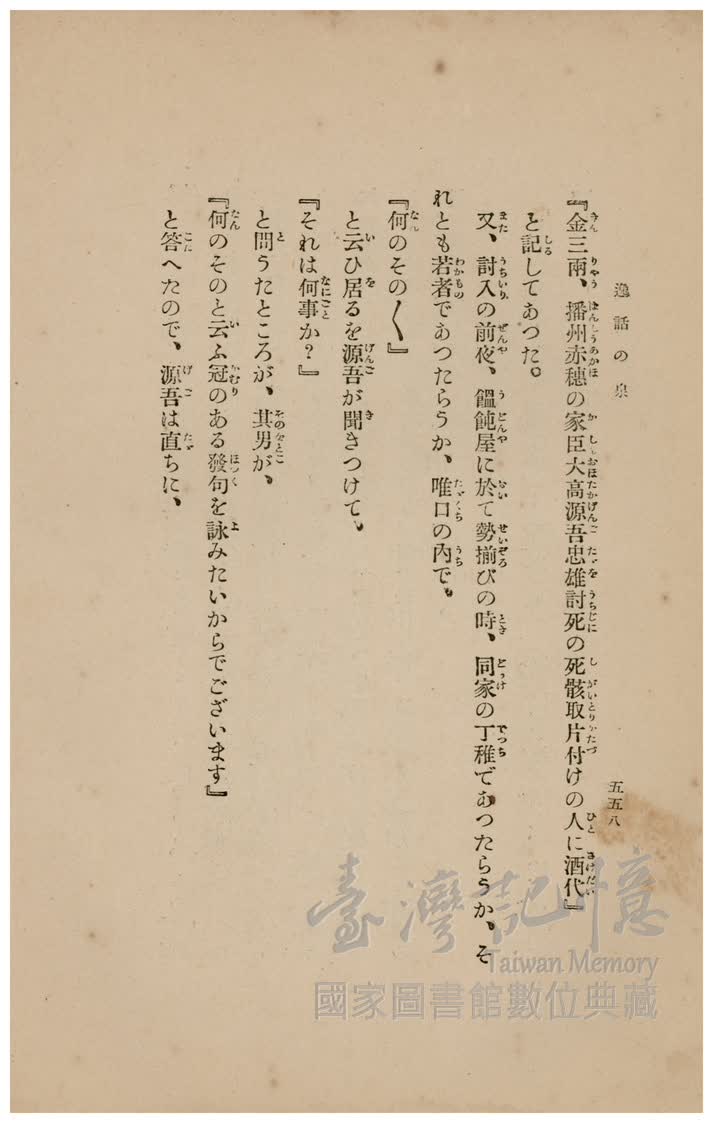 逸話の泉
五五八
『金三兩、播州赤穗の家臣大高源吾忠雄討死の死骸取片付けの人に酒代』
と記してあつた。
又、討入の前夜、饂飩屋に於て勢揃ひの時、同家の丁稚であつたらうか、そ
れとも若者であつたらうか、唯口の內で。
『何のその〱』
と云ひ居るを源吾が聞きつけて。
『それは何事か？』
と問うたところが、其男が、
『何のそのと云ふ冠のある發句を詠みたいからでございます』
と答へたので、源吾は直ちに、
臺灣記憶
Taiwan Memory
國家圖書館數位典藏